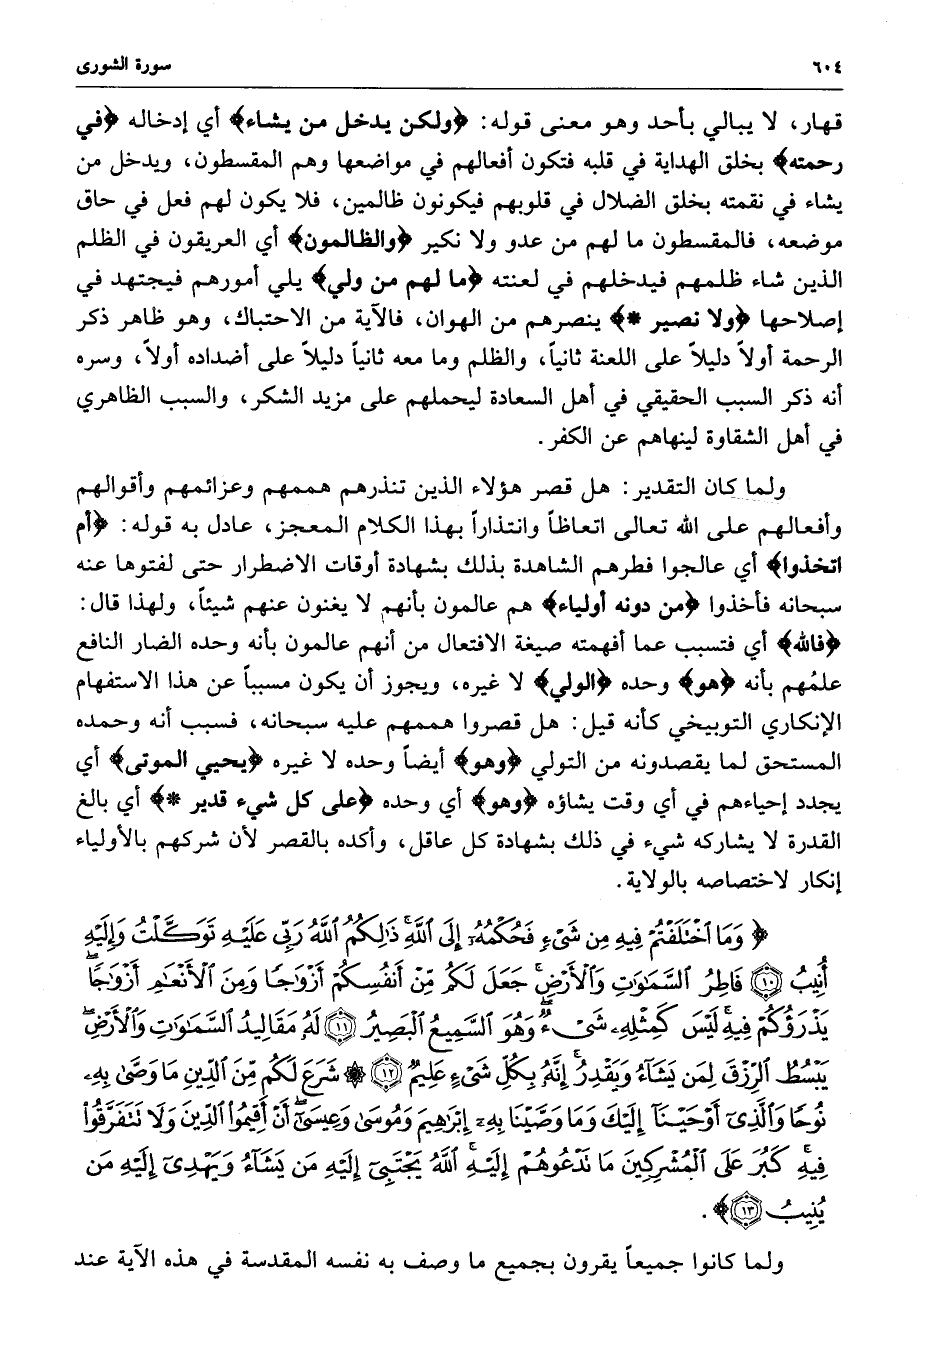 ٦٠٤ سورة الشورى
قهار، لا يبالي بأحد وهو معنى قوله: ﴿ولكن يدخل من يشاء﴾ أي إدخاله ﴿في
رحمته﴾ بخلق الهداية في قلبه فتكون أفعالهم في مواضعها وهم المقسطون، ويدخل من
يشاء في نقمته بخلق الضلال في قلوبهم فيكونون ظالمين، فلا يكون لهم فعل في حاق
موضعه، فالمقسطون ما لهم من عدو ولا نكير ﴿والظالمون﴾ أي العريقون في الظلم
الذين شاء ظلمهم فيدخلهم في لعنته ﴿ما لهم من ولي﴾ يلي أمورهم فيجتهد في
إصلاحها ﴿ولا نصير *﴾ ينصرهم من الهوان، فالآية من الاحتباك، وهو ظاهر ذكر
الرحمة أولاً دليلاً على اللعنة ثانياً، والظلم وما معه ثانياً دليلاً على أضداده أولاً، وسره
أنه ذكر السبب الحقيقي في أهل السعادة ليحملهم على مزيد الشكر، والسبب الظاهري
في أهل الشقاوة لينهاهم عن الكفر.
ولما كان التقدير: هل قصر هؤلاء الذين تنذرهم هممهم وعزائمهم وأقوالهم
وأفعالهم على الله تعالى اتعاظاً وانتذاراً بهذا الكلام المعجز، عادل به قوله: ﴿أم
اتخذوا﴾ أي عالجوا فطرهم الشاهدة بذلك بشهادة أوقات الاضطرار حتى لفتوها عنه
سبحانه فأخذوا ﴿من دونه أولياء﴾ هم عالمون بأنهم لا يغنون عنهم شيئاً، ولهذا قال:
﴿فالله﴾ أي فتسبب عما أفهمته صيغة الافتعال من أنهم عالمون بأنه وحده الضار النافع
علمُهم بأنه ﴿هو﴾ وحده ﴿الولي﴾ لا غيره، ويجوز أن يكون مسبباً عن هذا الاستفهام
الإنكاري التوبيخي كأنه قيل: هل قصروا هممهم عليه سبحانه، فسبب أنه وحمده
المستحق لما يقصدونه من التولي ﴿وهو﴾ أيضاً وحده لا غيره ﴿يحيي الموتى﴾ أي
يجدد إحياءهم في أي وقت يشاؤه ﴿وهو﴾ أي وحده ﴿على كل شيء قدير *﴾ أي بالغ
القدرة لا يشاركه شيء في ذلك بشهادة كل عاقل، وأكده بالقصر لأن شركهم بالأولياء
إنكار لاختصاصه بالولاية.
﴿ وَمَا ٱخْتَلَفْتُمْ فِيهِ مِن شَىْءٍ فَحُكْمُهُۥٓ إِلَى ٱللَّهِ ۚ ذَٰلِكُمُ ٱللَّهُ رَبِّى عَلَيْهِ تَوَكَّلْتُ وَإِلَيْهِ
أُنِيبُ ۝١٠ فَاطِرُ ٱلسَّمَٰوَٰتِ وَٱلْأَرْضِ ۚ جَعَلَ لَكُم مِّنْ أَنفُسِكُمْ أَزْوَٰجًا وَمِنَ ٱلْأَنْعَٰمِ أَزْوَٰجًا ۖ
يَذْرَؤُكُمْ فِيهِ ۚ لَيْسَ كَمِثْلِهِۦ شَىْءٌ ۖ وَهُوَ ٱلسَّمِيعُ ٱلْبَصِيرُ ۝١١ لَهُۥ مَقَالِيدُ ٱلسَّمَٰوَٰتِ وَٱلْأَرْضِ ۖ
يَبْسُطُ ٱلرِّزْقَ لِمَن يَشَآءُ وَيَقْدِرُ ۚ إِنَّهُۥ بِكُلِّ شَىْءٍ عَلِيمٌ ۝١٢ ۞ شَرَعَ لَكُم مِّنَ ٱلدِّينِ مَا وَصَّىٰ بِهِۦ
نُوحًا وَٱلَّذِىٓ أَوْحَيْنَآ إِلَيْكَ وَمَا وَصَّيْنَا بِهِۦٓ إِبْرَٰهِيمَ وَمُوسَىٰ وَعِيسَىٰٓ ۖ أَنْ أَقِيمُوا۟ ٱلدِّينَ وَلَا تَتَفَرَّقُوا۟
فِيهِ ۚ كَبُرَ عَلَى ٱلْمُشْرِكِينَ مَا تَدْعُوهُمْ إِلَيْهِ ۚ ٱللَّهُ يَجْتَبِىٓ إِلَيْهِ مَن يَشَآءُ وَيَهْدِىٓ إِلَيْهِ مَن
يُنِيبُ ۝١٣ ﴾.
ولما كانوا جميعاً يقرون بجميع ما وصف به نفسه المقدسة في هذه الآية عند